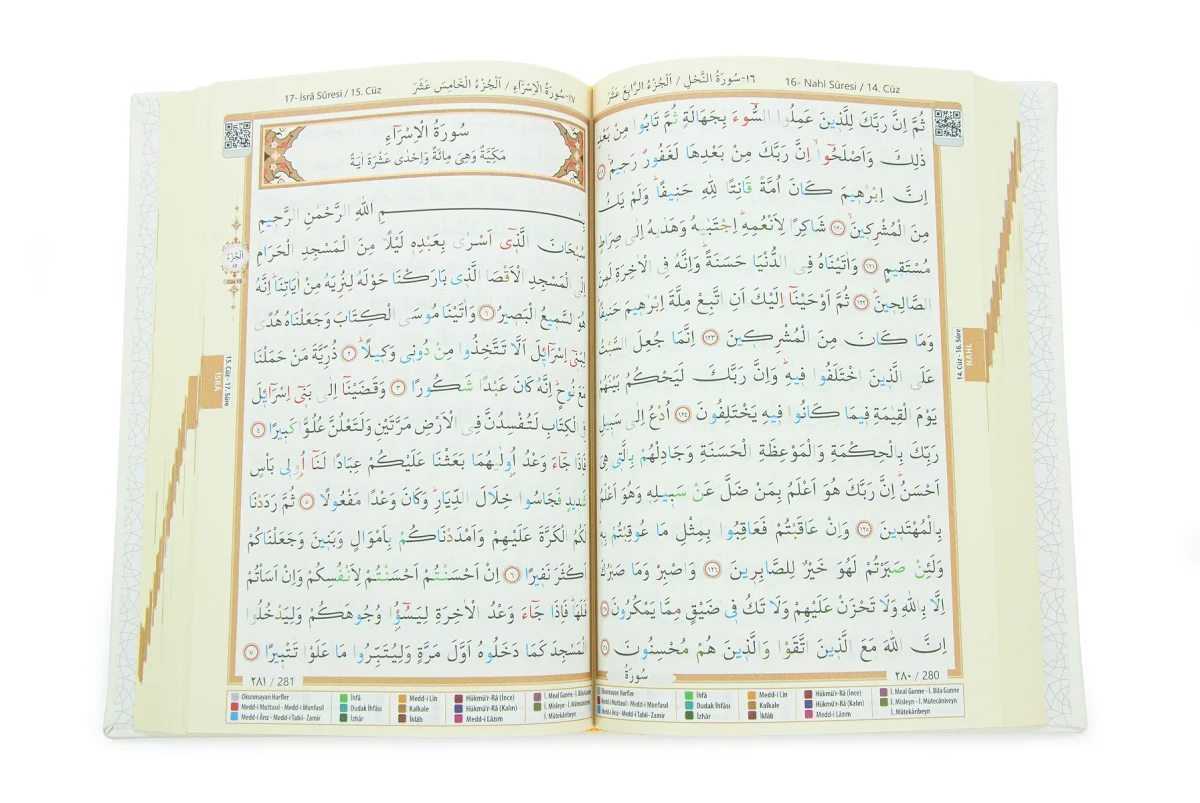 16- Nahl Sûresi / 14. Cüz
١٦-سُورَةُ النَّحْلِ / اَلْجُزْءُ الرَّابِعَ عَشَرَ
ثُمَّ اِنَّ رَبَّكَ لِلَّذٖينَ عَمِلُوا السُّٓوءَ بِجَهَالَةٍ ثُمَّ تَابُوا مِنْ بَعْدِ
ذٰلِكَ وَاَصْلَحُٓوا اِنَّ رَبَّكَ مِنْ بَعْدِهَا لَغَفُورٌ رَحٖيمٌ
اِنَّ اِبْرٰهٖيمَ كَانَ اُمَّةً قَانِتًا لِلّٰهِ حَنٖيفًا وَلَمْ يَكُ
مِنَ الْمُشْرِكٖينَ ﴿١٢٠﴾ شَاكِرًا لِاَنْعُمِهٖ اِجْتَبٰيهُ وَهَدٰيهُ اِلٰى صِرَاطٍ
مُسْتَقٖيمٍ ﴿١٢١﴾ وَاٰتَيْنَاهُ فِي الدُّنْيَا حَسَنَةً وَاِنَّهُ فِي الْاٰخِرَةِ لَمِنَ
الصَّالِحٖينَ ﴿١٢٢﴾ ثُمَّ اَوْحَيْنَٓا اِلَيْكَ اَنِ اتَّبِعْ مِلَّةَ اِبْرٰهٖيمَ حَنٖيفًا
وَمَا كَانَ مِنَ الْمُشْرِكٖينَ ﴿١٢٣﴾ اِنَّمَا جُعِلَ السَّبْتُ
عَلَى الَّذٖينَ اخْتَلَفُوا فٖيهِ وَاِنَّ رَبَّكَ لَيَحْكُمُ بَيْنَهُمْ
يَوْمَ الْقِيٰمَةِ فٖيمَا كَانُوا فٖيهِ يَخْتَلِفُونَ ﴿١٢٤﴾ اُدْعُ اِلٰى سَبٖيلِ
رَبِّكَ بِالْحِكْمَةِ وَالْمَوْعِظَةِ الْحَسَنَةِ وَجَادِلْهُمْ بِالَّتٖي هِيَ
اَحْسَنُ اِنَّ رَبَّكَ هُوَ اَعْلَمُ بِمَنْ ضَلَّ عَنْ سَبٖيلِهٖ وَهُوَ اَعْلَمُ
بِالْمُهْتَدٖينَ ﴿١٢٥﴾ وَاِنْ عَاقَبْتُمْ فَعَاقِبُوا بِمِثْلِ مَا عُوقِبْتُمْ بِهٖ
وَلَئِنْ صَبَرْتُمْ لَهُوَ خَيْرٌ لِلصَّابِرٖينَ ﴿١٢٦﴾ وَاصْبِرْ وَمَا صَبْرُكَ
اِلَّا بِاللّٰهِ وَلَا تَحْزَنْ عَلَيْهِمْ وَلَا تَكُ فٖي ضَيْقٍ مِمَّا يَمْكُرُونَ
اِنَّ اللّٰهَ مَعَ الَّذٖينَ اتَّقَوْا وَالَّذٖينَ هُمْ مُحْسِنُونَ
سُورَةُ
٢٨٠ / 280
14. Cüz - 16. Sûre
NAHL
Okunmayan Harfler
Medd-i Muttasıl - Medd-i Munfasıl
Medd-i Ârız - Medd-i Tabiî - Zamir
İhfâ
Dudak İhfâsı
İzhâr
Medd-i Lîn
Kalkale
İklâb
Hükmü'r-Râ (İnce)
Hükmü'r-Râ (Kalın)
Medd-i Lâzım
İ. Meal Gunne - İ. Bila Gunne
İ. Misleyn - İ. Mütecâniseyn
İ. Mütekâribeyn
17- İsrâ Sûresi / 15. Cüz
١٧-سُورَةُ الْاِسْرَاءِ / اَلْجُزْءُ الْخَامِسَ عَشَرَ
سُورَةُ الْاِسْرَاءِ
مَكِّيَّةٌ وَهِيَ مِائَةٌ وَاِحْدٰى عَشْرَةَ اٰيَةً
بِسْمِ اللّٰهِ الرَّحْمٰنِ الرَّحٖيمِ
سُبْحَانَ الَّذٖٓي اَسْرٰى بِعَبْدِهٖ لَيْلًا مِنَ الْمَسْجِدِ الْحَرَامِ
اِلَى الْمَسْجِدِ الْاَقْصَا الَّذٖي بَارَكْنَا حَوْلَهُ لِنُرِيَهُ مِنْ اٰيَاتِنَا اِنَّهُ
هُوَ السَّمٖيعُ الْبَصٖيرُ ﴿١﴾ وَاٰتَيْنَا مُوسَى الْكِتَابَ وَجَعَلْنَاهُ هُدًى
لِبَنٖٓي اِسْرَٓائٖلَ اَلَّا تَتَّخِذُوا مِنْ دُونٖي وَكٖيلًا ﴿٢﴾ ذُرِّيَّةَ مَنْ حَمَلْنَا
مَعَ نُوحٍ اِنَّهُ كَانَ عَبْدًا شَكُورًا ﴿٣﴾ وَقَضَيْنَٓا اِلٰى بَنٖٓي اِسْرَٓائٖلَ
فِي الْكِتَابِ لَتُفْسِدُنَّ فِي الْاَرْضِ مَرَّتَيْنِ وَلَتَعْلُنَّ عُلُوًّا كَبٖيرًا ﴿٤﴾
فَاِذَا جَٓاءَ وَعْدُ اُو۫لٰيهُمَا بَعَثْنَا عَلَيْكُمْ عِبَادًا لَنَٓا اُو۬لٖي بَأْسٍ
شَدٖيدٍ فَجَاسُوا خِلَالَ الدِّيَارِ وَكَانَ وَعْدًا مَفْعُولًا ﴿٥﴾ ثُمَّ رَدَدْنَا
لَكُمُ الْكَرَّةَ عَلَيْهِمْ وَاَمْدَدْنَاكُمْ بِاَمْوَالٍ وَبَنٖينَ وَجَعَلْنَاكُمْ
اَكْثَرَ نَفٖيرًا ﴿٦﴾ اِنْ اَحْسَنْتُمْ اَحْسَنْتُمْ لِاَنْفُسِكُمْ وَاِنْ اَسَأْتُمْ
فَلَهَا فَاِذَا جَٓاءَ وَعْدُ الْاٰخِرَةِ لِيَسُٓؤُ۫ا وُجُوهَكُمْ وَلِيَدْخُلُوا
الْمَسْجِدَ كَمَا دَخَلُوهُ اَوَّلَ مَرَّةٍ وَلِيُتَبِّرُوا مَا عَلَوْا تَتْبٖيرًا ﴿٧﴾
٢٨١ / 281
اَلْجُزْءُ
١٥
Cüz 15
15. Cüz - 17. Sûre
İSRÂ
Okunmayan Harfler
Medd-i Muttasıl - Medd-i Munfasıl
Medd-i Ârız - Medd-i Tabiî - Zamir
İhfâ
Dudak İhfâsı
İzhâr
Medd-i Lîn
Kalkale
İklâb
Hükmü'r-Râ (İnce)
Hükmü'r-Râ (Kalın)
Medd-i Lâzım
İ. Meal Gunne - İ. Bila Gunne
İ. Misleyn - İ. Mütecâniseyn
İ. Mütekâribeyn